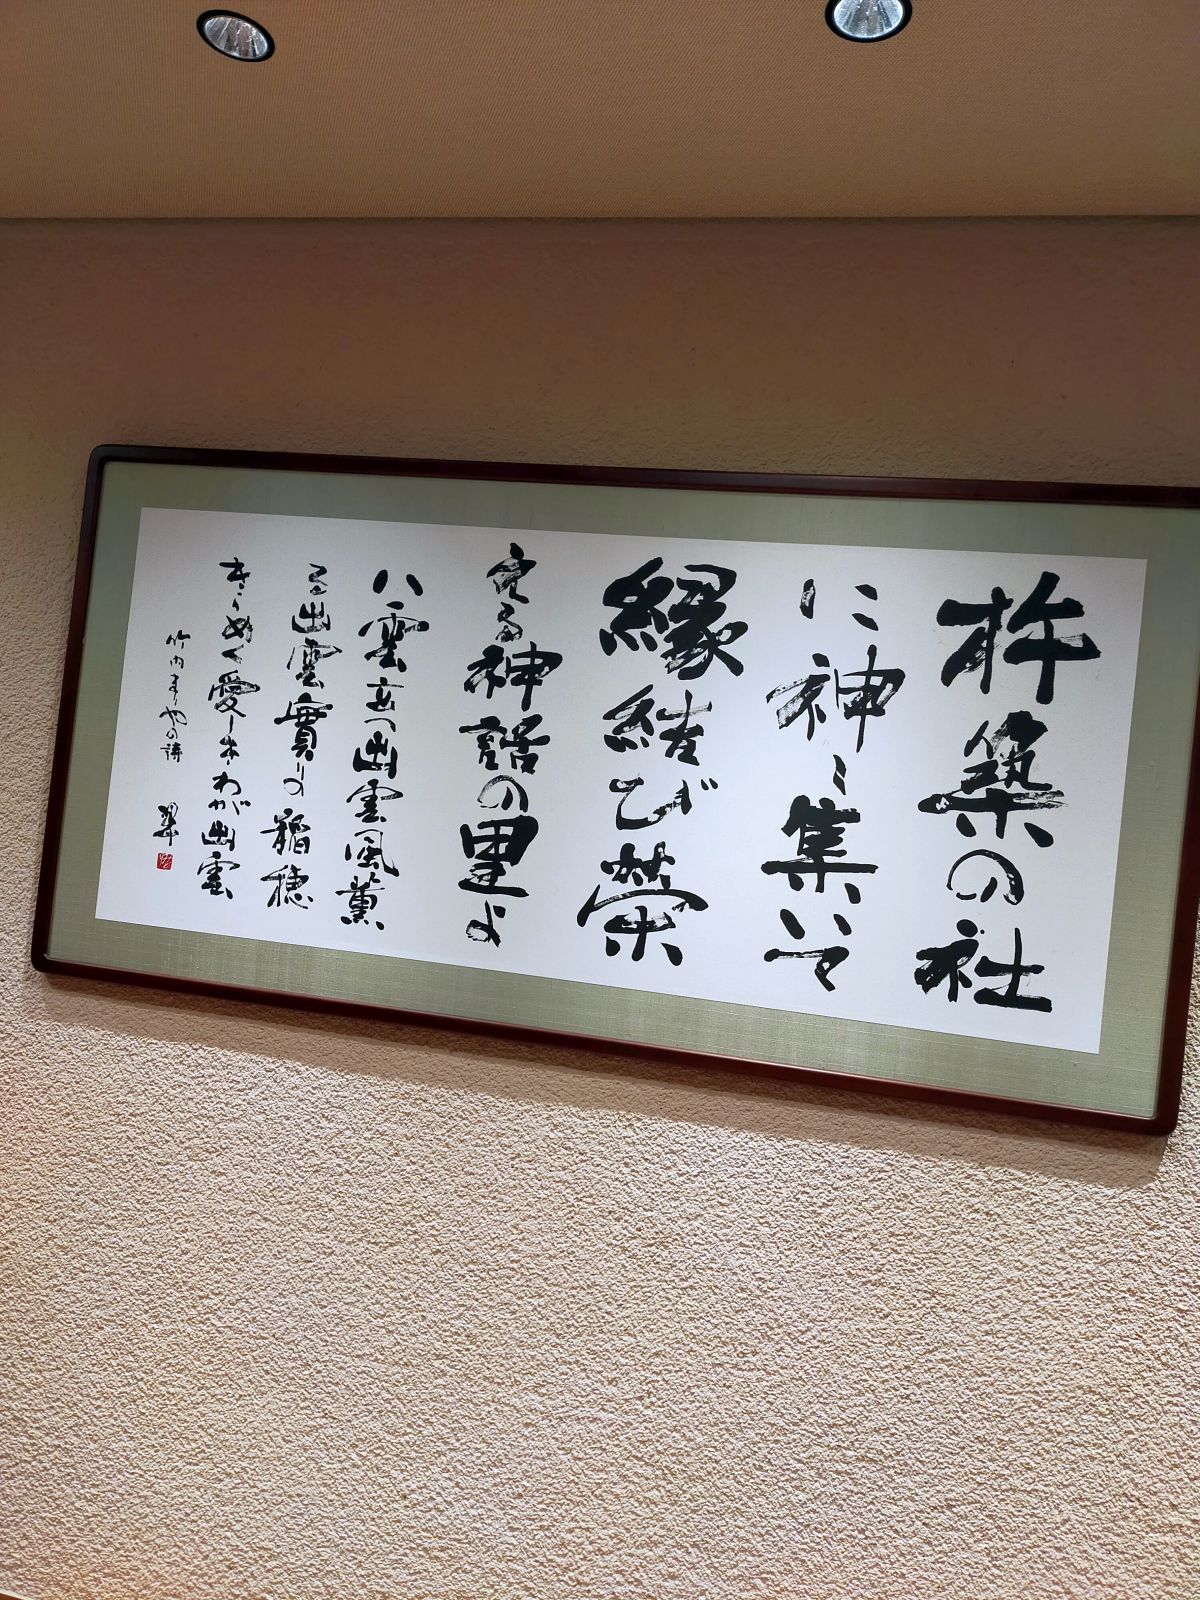 杵築の社
に神々集いて
縁結び栄
える神話の里よ
八雲立つ出雲風薫
る出雲實りの稲穂
きらめく愛しきわが出雲
竹内まりやの詩